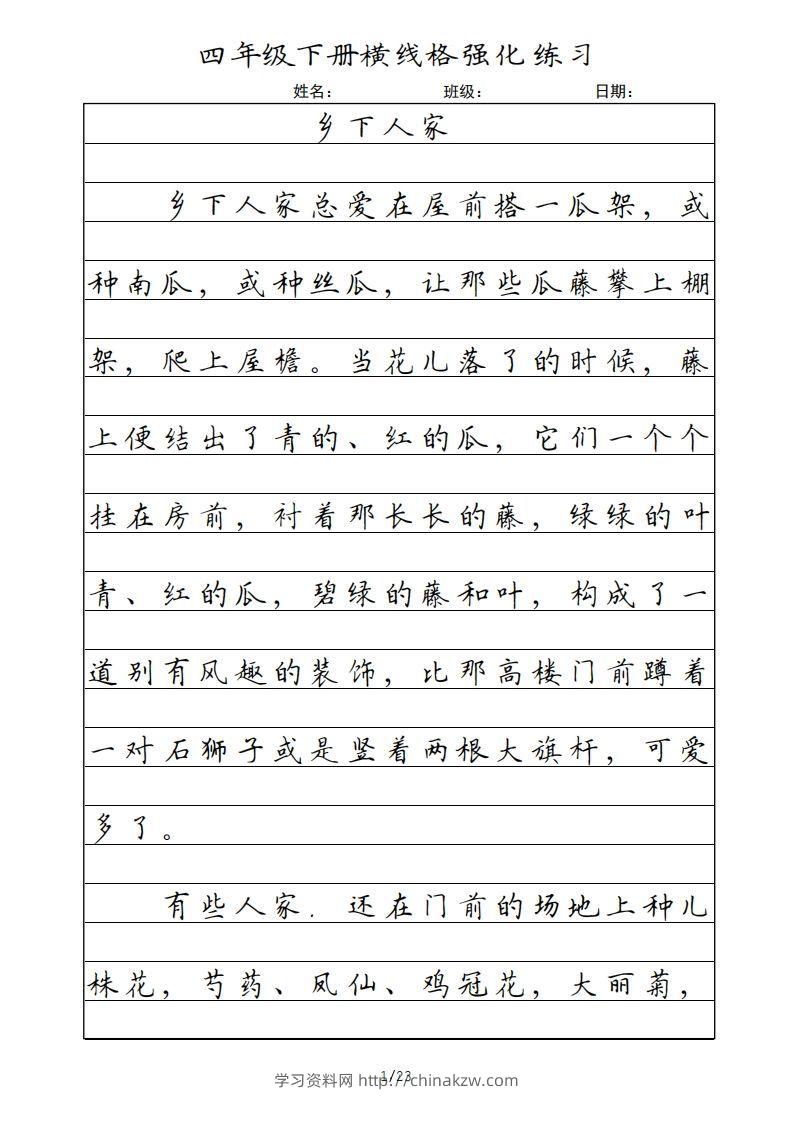 四年级下册横线格强化练习
姓名: 班级: 日期:
乡下人家
乡下人家总爱在屋前搭一瓜架，或
种南瓜，或种丝瓜，让那些瓜藤攀上棚
架，爬上屋檐。当花儿落了的时候，藤
上便结出了青的、红的瓜，它们一个个
挂在房前，衬着那长长的藤，绿绿的叶
青、红的瓜，碧绿的藤和叶，构成了一
道别有风趣的装饰，比那高楼门前蹲着
一对石狮子或是竖着两根大旗杆，可爱
多了。
有些人家．还在门前的场地上种儿
株花，芍药、凤仙、鸡冠花，大丽菊，
1/23
学习资料网 http://chinakzw.com